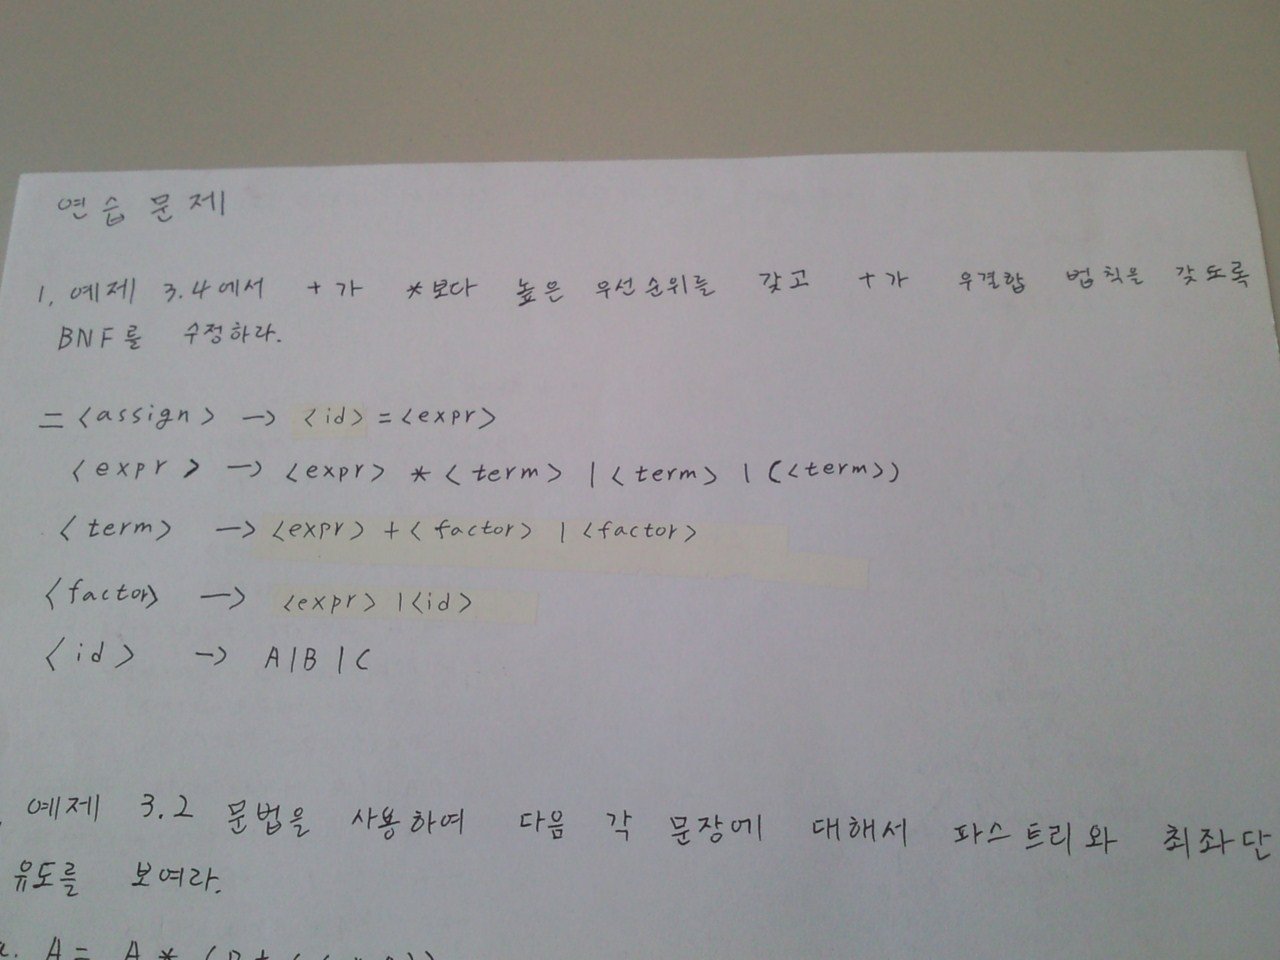 연습문제
1. 예제 3.4에서 +가 *보다 높은 우선순위를 갖고 +가 우결합 법칙을 갖도록
BNF를 수정하라.
= <assign> -> <id> = <expr>
<expr> -> <expr> * <term> | <term> | (<term>)
<term> -> <expr> + <factor> | <factor>
<factor> -> <expr> | <id>
<id> -> A | B | C
예제 3.2 문법을 사용하여 다음 각 문장에 대해서 파스트리와 최좌단
유도를 보여라.
A = A * (B +